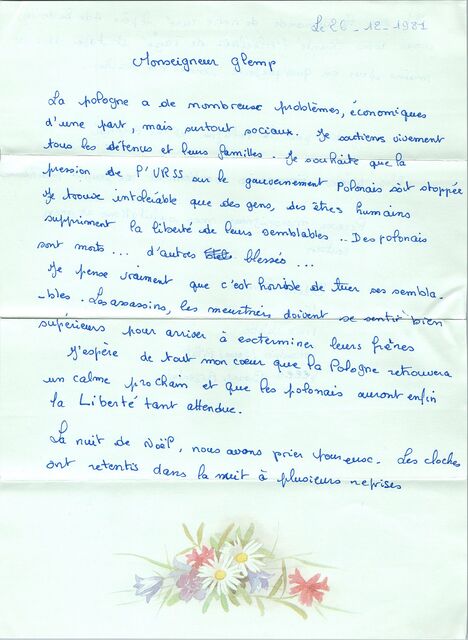 Le 26-12-1981
Monseigneur Glemp
La pologne a de nombreux problèmes, économiques
d'une part, mais surtout sociaux. Je soutiens vivement
tous les détenus et leurs familles. Je souhaite que la
pression de l'URSS sur le gouvernement Polonais soit stoppée
Je trouve intolérable que des gens, des êtres humains
suppriment la liberté de leurs semblables .. Des polonais
sont morts ... d'autres blessés ...
Je pense vraiment que c'est horrible de tuer ses sembla-
-bles. Les assassins, les meurtriers doivent se sentir bien
supérieurs pour arriver à exterminer leurs frères
J'espère de tout mon cœur que la Pologne retrouvera
un calme prochain et que les polonais auront enfin
la Liberté tant attendue.
La nuit de Noël, nous avons prier pour eux. Les cloches
ont retentis dans la nuit à plusieurs reprises